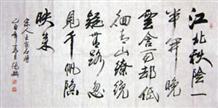 江北秋陰一
半開晚
雲含雨却低
徊青山繚繞
疑無路忽
見千帆隱
映来